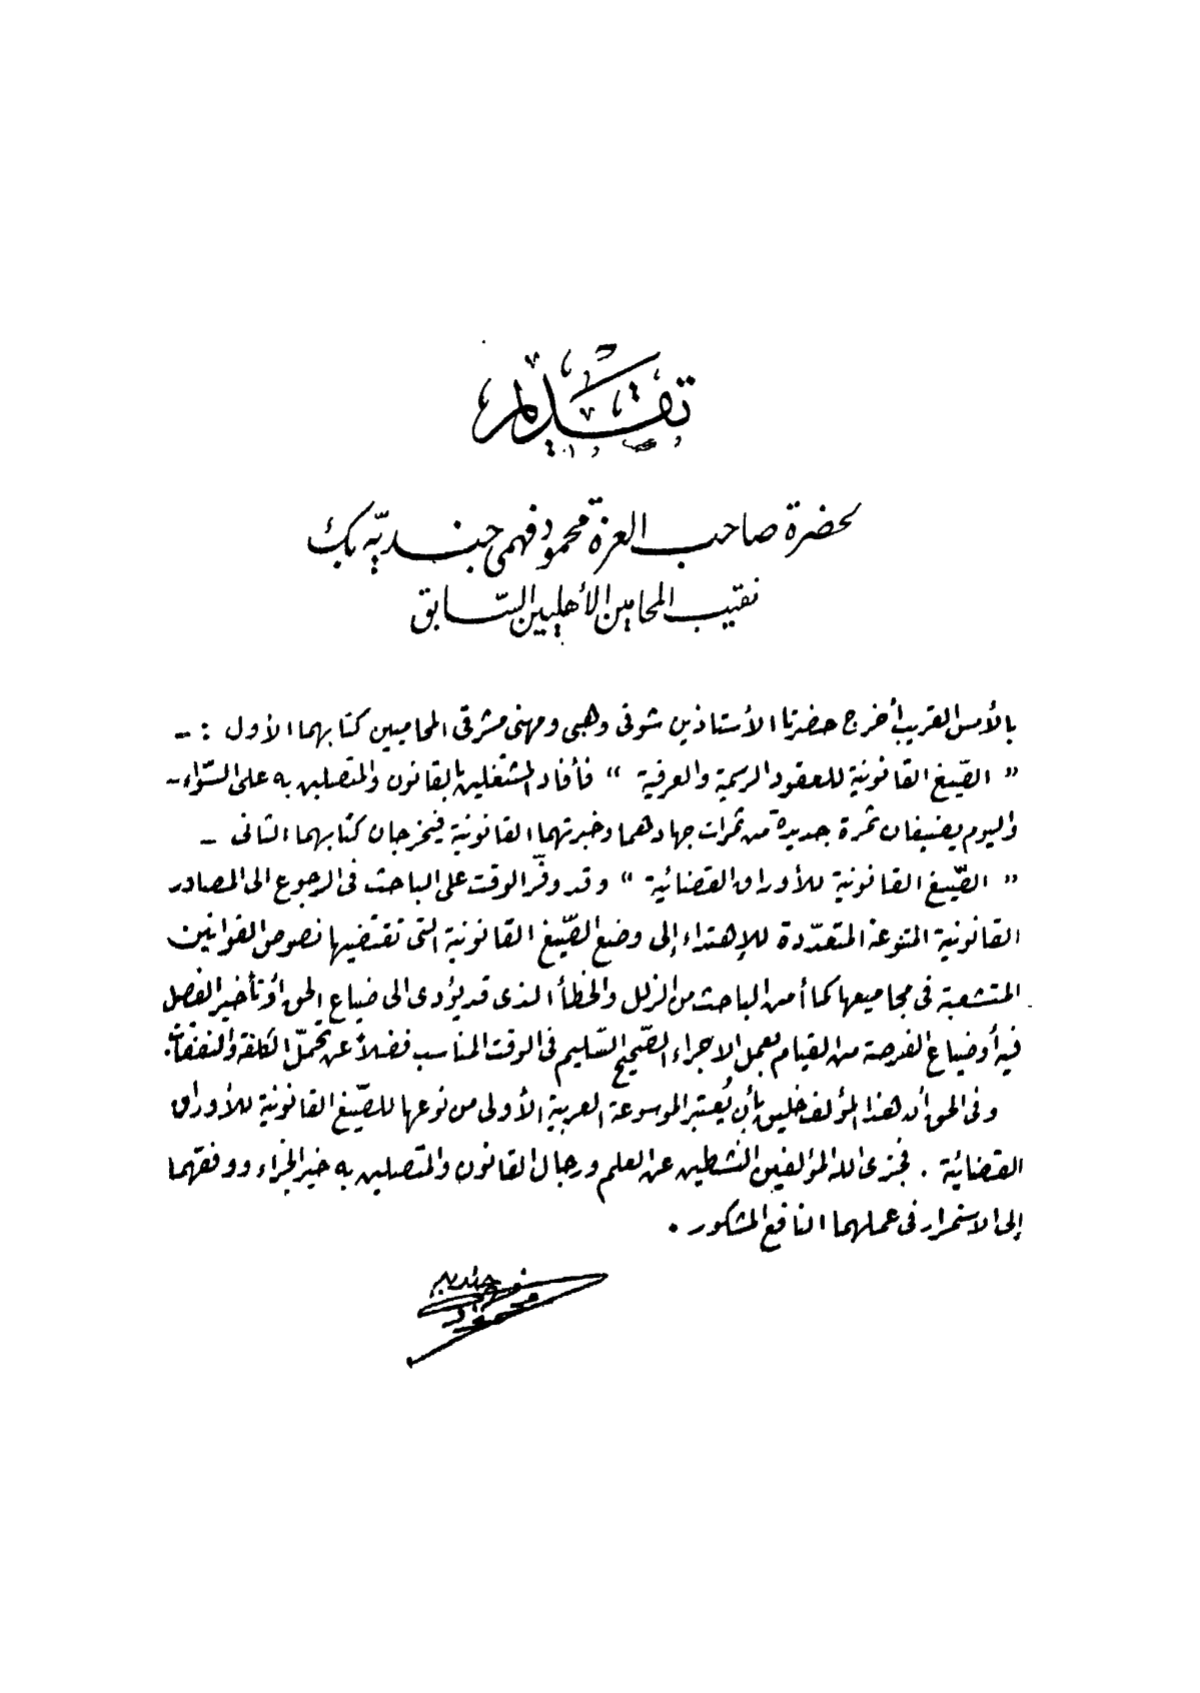 تقديم
لحضرة صاحب العزة محمود فهمى جنديّه بك
نقيب المحامين الأهليين السّابق
بالأمس القريب أخرج حضرتا الأستاذين شوقى وهبى ومهنى مشرقى المحاميين كتابهما الأول : -
" الصّيغ القانونية للعقود الرسمية والعرفية " فأفاد المشتغلين بالقانون والمتصلين به على السّواء -
واليوم يضيفان ثمرة جديدة من ثمرات جهادهما وخبرتهما القانونية فيخرجان كتابهما الثانى -
" الصّيغ القانونية للأوراق القضائية " وقد وفّر الوقت على الباحث فى الرجوع الى المصادر
القانونية المتنوعة المتعدّدة للإهتداء إلى وضع الصّيغ القانونية التى تقتضيها نصوص القوانين
المتشعبة فى مجاميعها كما أمن الباحث من الزلل والخطأ الذى قد يؤدى الى ضياع الحق أو تأخير الفصل
فيه أو ضياع الفرصة من القيام بعمل الاجراء الصّحيح السّليم فى الوقت المناسب فضلاً عن تحمّل الكلفة والنفقات .
وفى الحق أن هذا المؤلف خليق بأن يُعتبر الموسوعة العربية الأولى من نوعها للصّيغ القانونية للأوراق
القضائية . فجزى الله المؤلفين النشطين عن العلم ورجال القانون والمتصلين به خير الجزاء ووفقهما
إلى الاستمرار فى عملهما النافع المشكور .
محمود فهمى جنديه